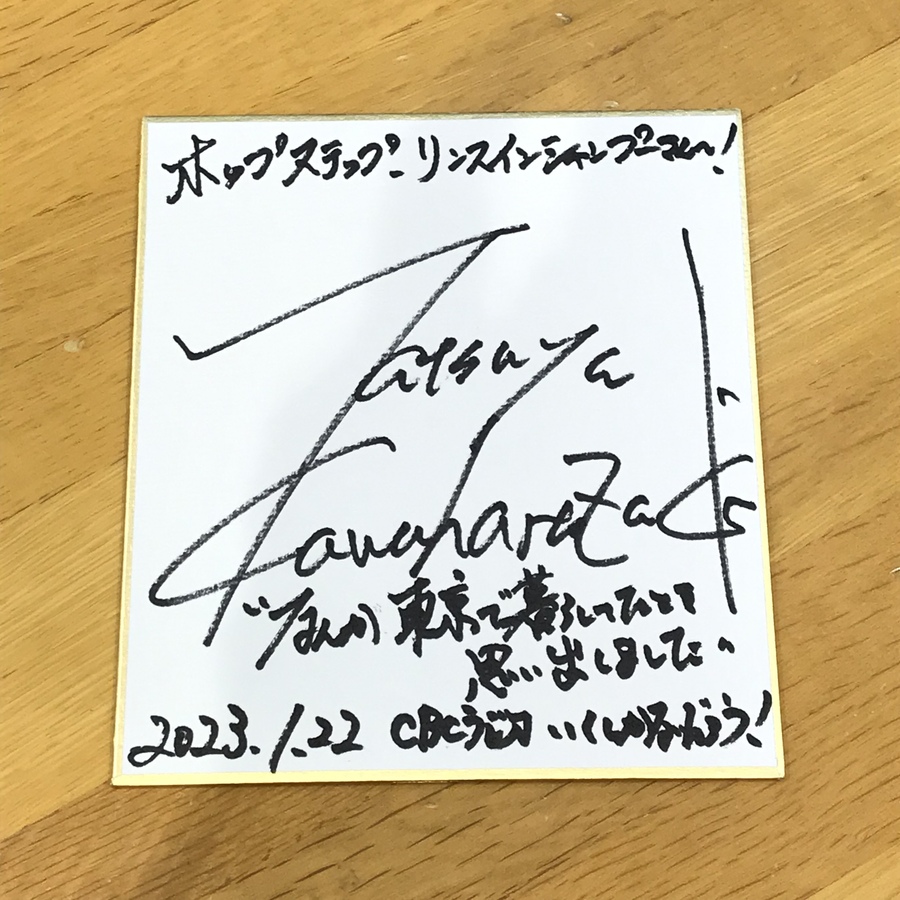 ホップステップ リンスインシャンプーさん〜!
Tatsuya
Kawaharazaki
"なんか東京で暮らしてたとき
思い出しました"
2023.1.22 CBCラジオ